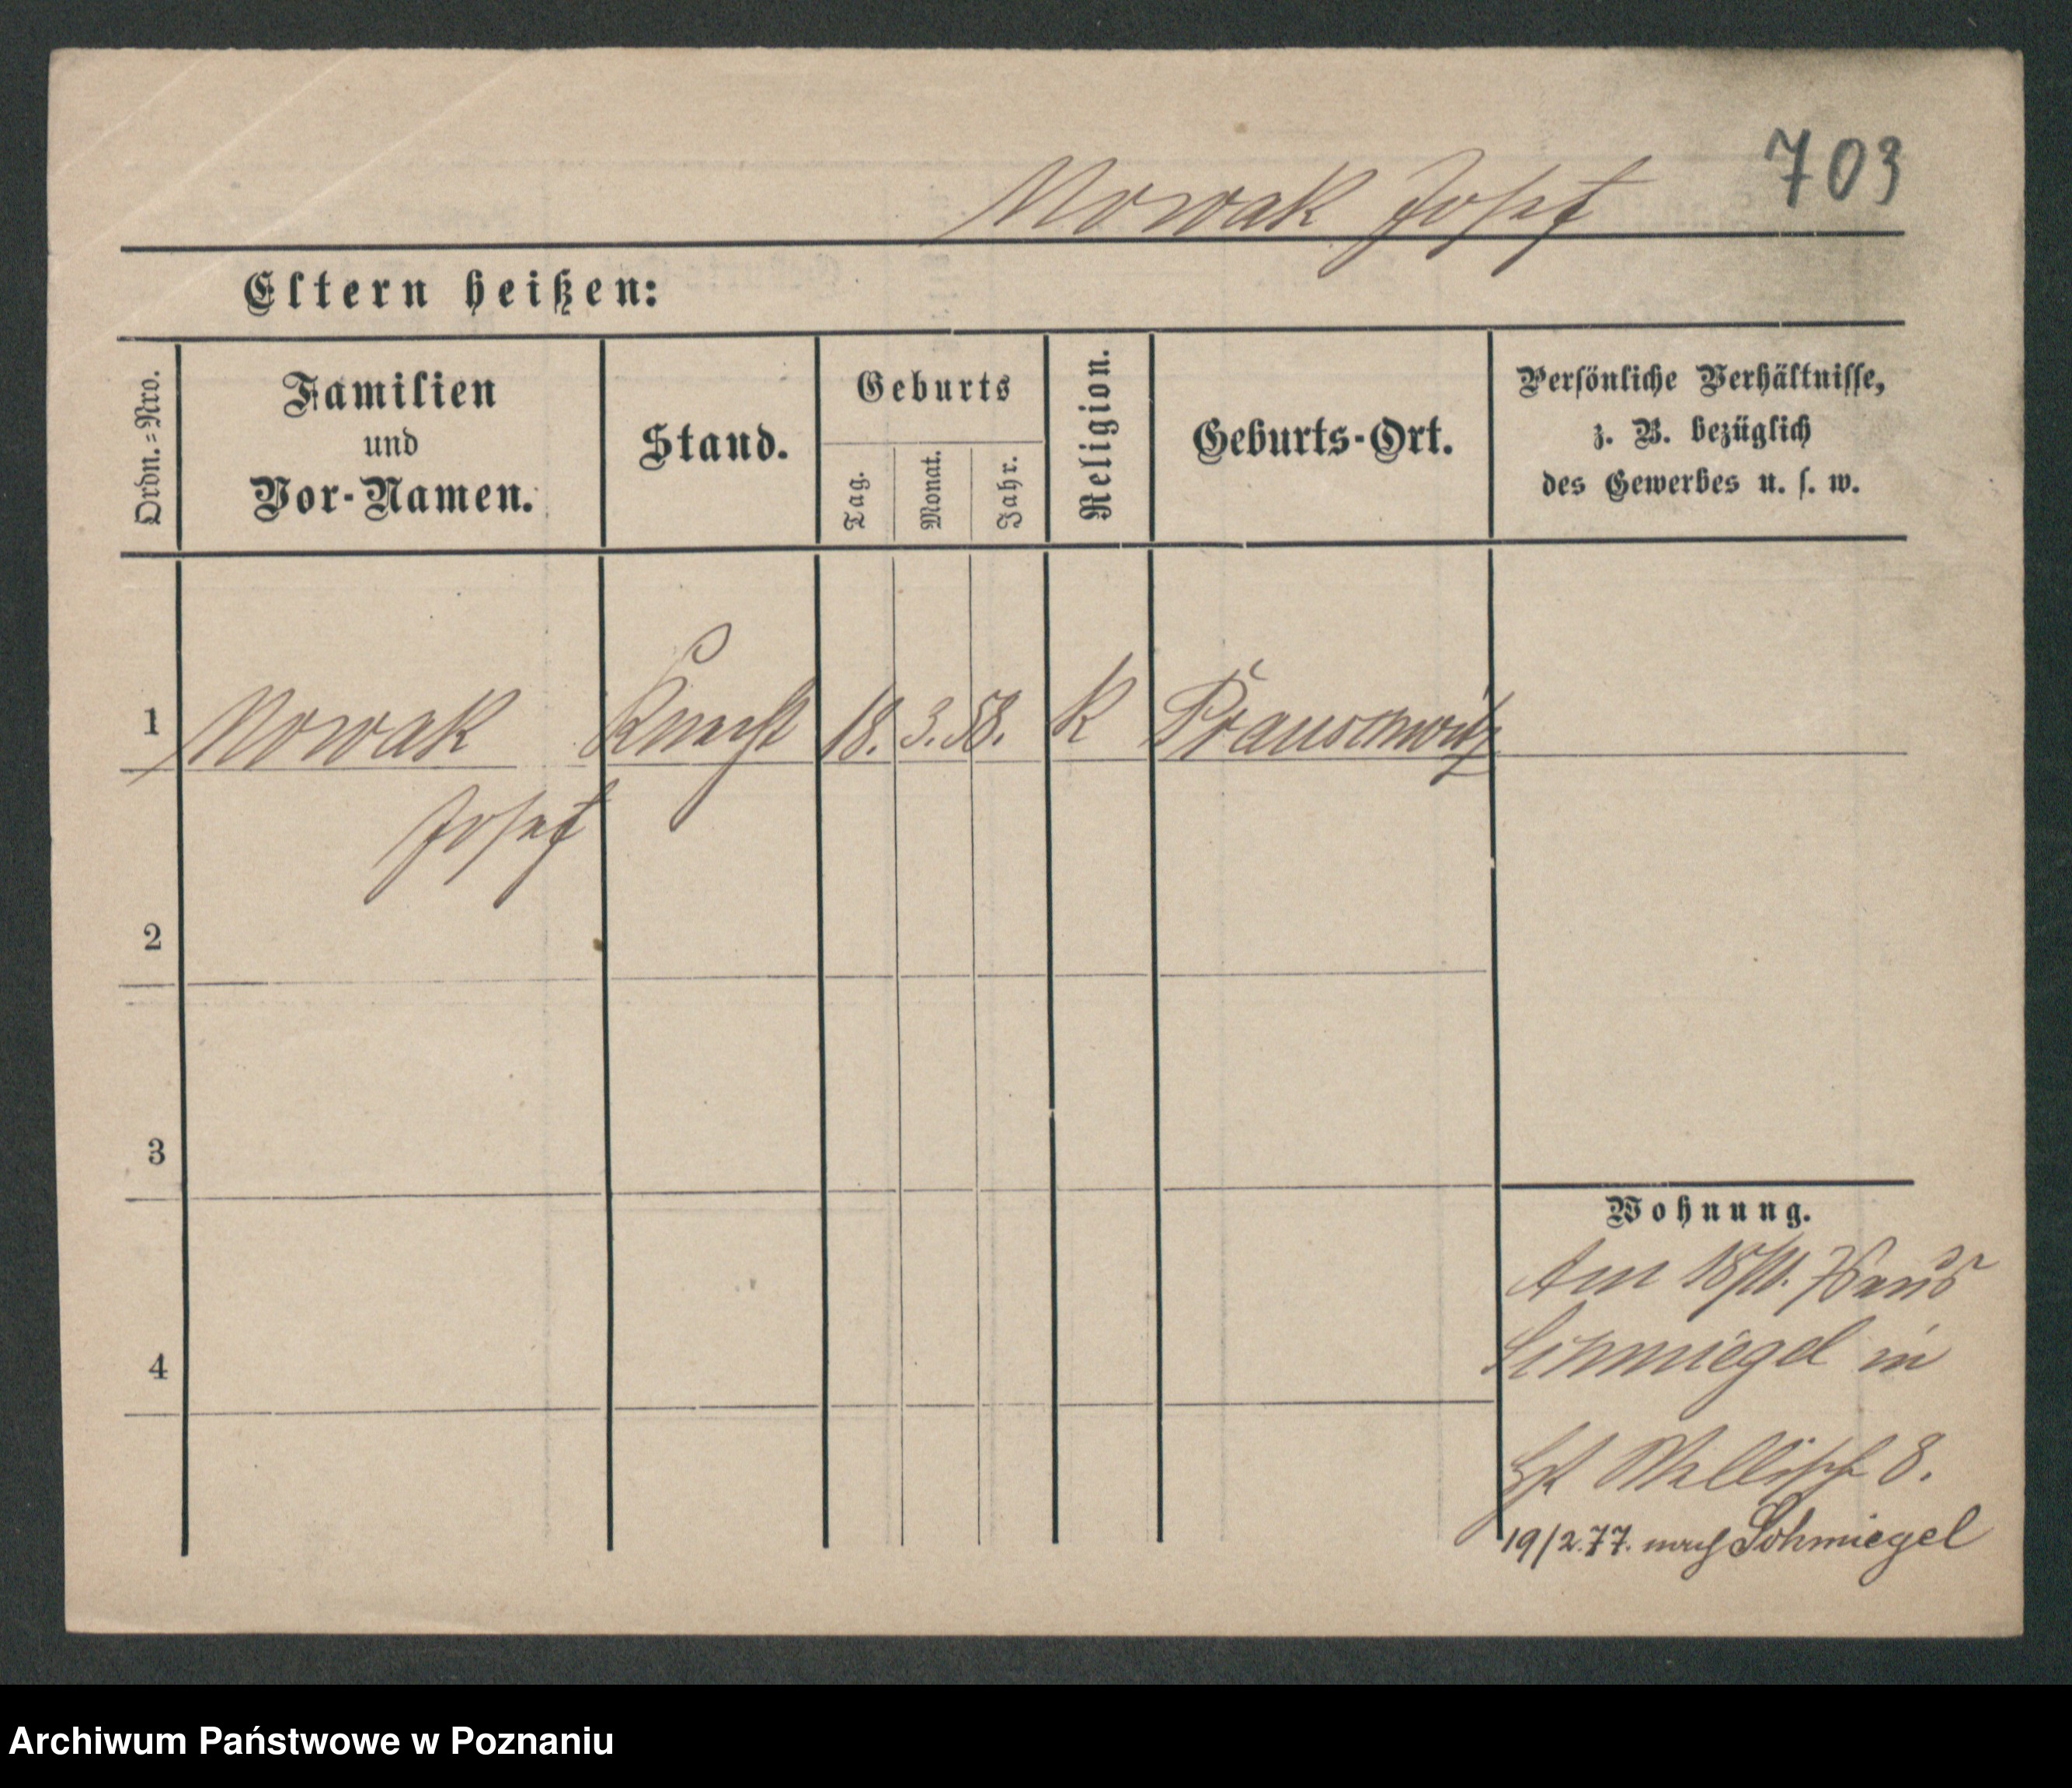 703
Nowak Josef
Eltern heißen:
Ordn.=Nro.
Familien
und
Vor-Namen.
Stand.
Geburts
Tag.
Monat.
Jahr.
Religion.
Geburts-Ort.
Persönliche Verhältnisse,
z. B. bezüglich
des Gewerbes u. s. w.
1 Nowak Knecht 18. 3. 58. K
Josef
2
3
Wohnung.
Am 18/11.
Schmiegel in
4
8.
19/2.77. nach Schmiegel
Archiwum Państwowe w Poznaniu